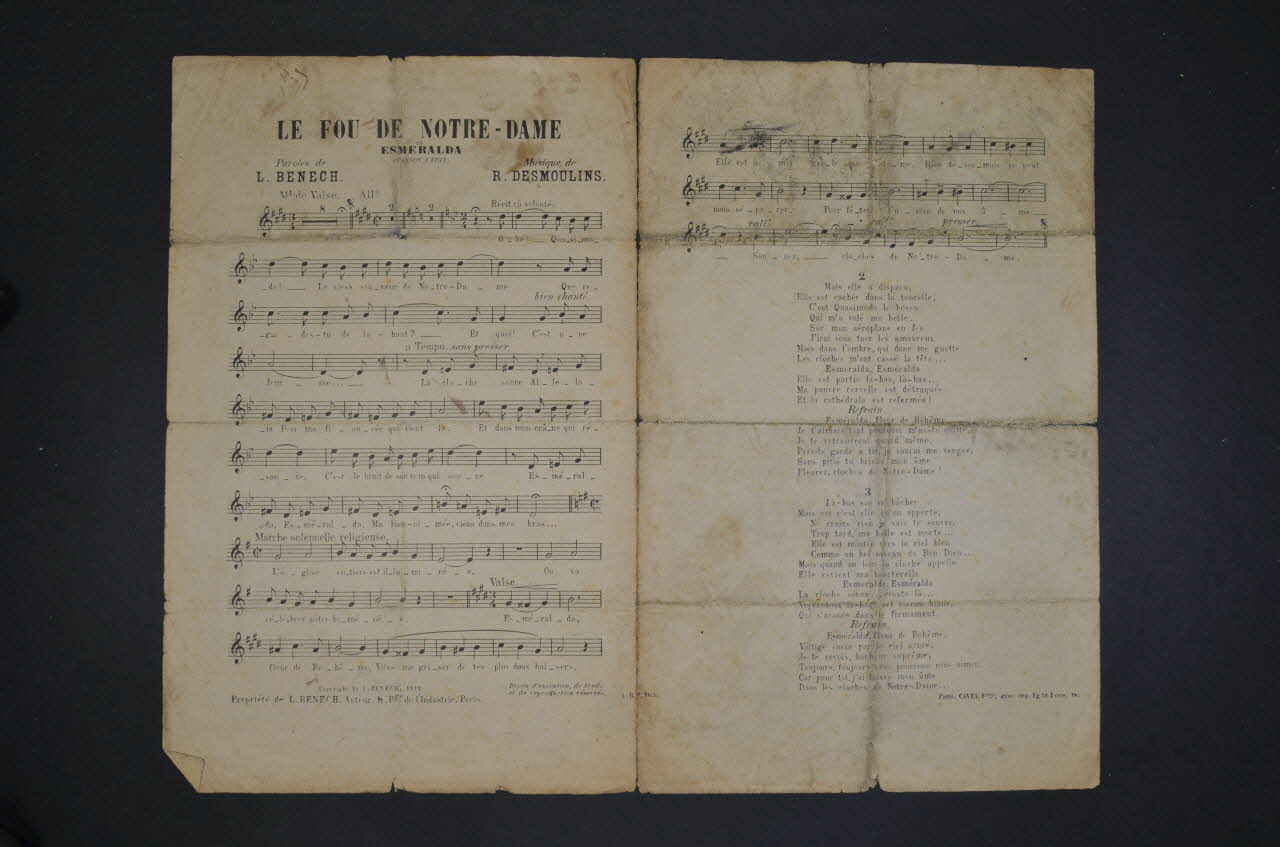 LE FOU DE NOTRE-DAME
ESMERALDA
Paroles de
L. BENECH.
Musique de
R. DESMOULINS.
Mt de Valse. Allo
Récit (à volonté)
O_hé! Quasi_mo_
_do! Le vieux son_neur de No_tre-Da_me Que re_
bien chanté
_gar_des-tu de là-haut? Et quoi! C'est u_ne
a Tempo, sans presser
fem_me... La clo_che sonne Al_le_lu_
_ia Pour ma fi_an_cée qui vient là. Et dans mon crâ_ne qui ré_
_son_ne, C'est le bruit de son nom qui son_ne Es_mé_ral_
_da, Es_mé_ral_da, Ma bien-ai_mée, viens dans mes bras...
Marche solennelle religieuse
L'é_glise en_tière est il_lu_mi_né_e, On va
Valse
cé_lé_brer notre hy_mé_né_e, Es_mé_ral_da,
fleur de Bo_hê_me, Viens me gri_ser de tes plus doux bai_sers,
Copyright by L. BENECH, 1912
Droits d'exécution, de trad.
et de reproduction réservés.
Propriété de L. BENECH, Auteur, 8, Pge de l'Industrie, Paris.
Elle est à Rien dé_sor_mais ne peut
nous sé_pa_rer, Pour fê_ter de nos â_me
rall. presser
Son_nez, clo_ches de No_tre-Da_me.
2
Mais elle a disparu,
Elle est cachée dans la tourelle,
C'est Quasimodo le bossu
Qui m'a volé ma belle.
Sur mon aéroplane en feu
J'irai vous tuer les amoureux
Mais dans l'ombre, qui donc me guette
Les cloches m'ont cassé la tête...
Esmeralda, Esméralda
Elle est partie là-bas, là-bas...
Ma pauvre cervelle est détraquée
Et la cathédrale est refermée!
Refrain
Esméralda, fleur de Bohême
Je t'aimais tant pourquoi m'as-tu quitté,
Je te retrouverai quand même,
Prends garde à toi, je saurai me venger,
Sans pitié tu brisas mon âme
Pleurez, cloches de Notre-Dame!
3
Là-bas sur un bûcher...
Mais oui c'est elle qu'on apporte,
Ne crains rien je vais te sauver,
Trop tard, ma belle est morte...
Elle est montée vers le ciel bleu
Comme un bel oiseau du Bon Dieu...
Mais quand au loin la cloche appelle
Elle revient ma tourterelle
Esmeralda, Esméralda
La cloche sonne... écoute-là...
Voyez-vous là-haut cet oiseau blanc,
Qui s'avance dans le firmament.
Refrain
Esméralda, fleur de Bohême,
Voltige encor par le ciel azuré,
Je te revois, bonheur suprême,
Toujours, toujours nous pourrons nous aimer,
Car pour toi, j'ai laissé mon âme
Dans les cloches de Notre-Dame...
Paris, CAVEL Frères, grav. imp. Fg St Denis,